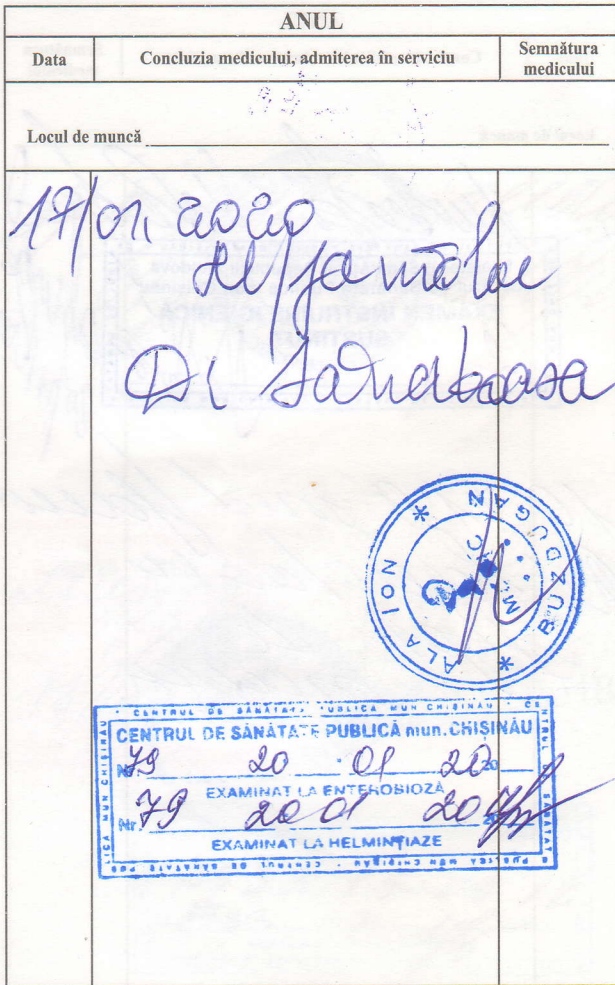 ANUL
Data
Concluzia medicului, admiterea în serviciu
Semnătura medicului
Locul de muncă
17/01 2020
Sanatoasa
ALA ION * BUZDUGAN *
CENTRUL DE SĂNĂTATE PUBLICĂ MUN CHIȘINĂU
CENTRUL DE SĂNĂTATE PUBLICĂ mun. CHIȘINĂU
Nr. 79 20 01 20
EXAMINAT LA ENTEROBIOZĂ
Nr. 79 20 01 20
EXAMINAT LA HELMINTIAZE